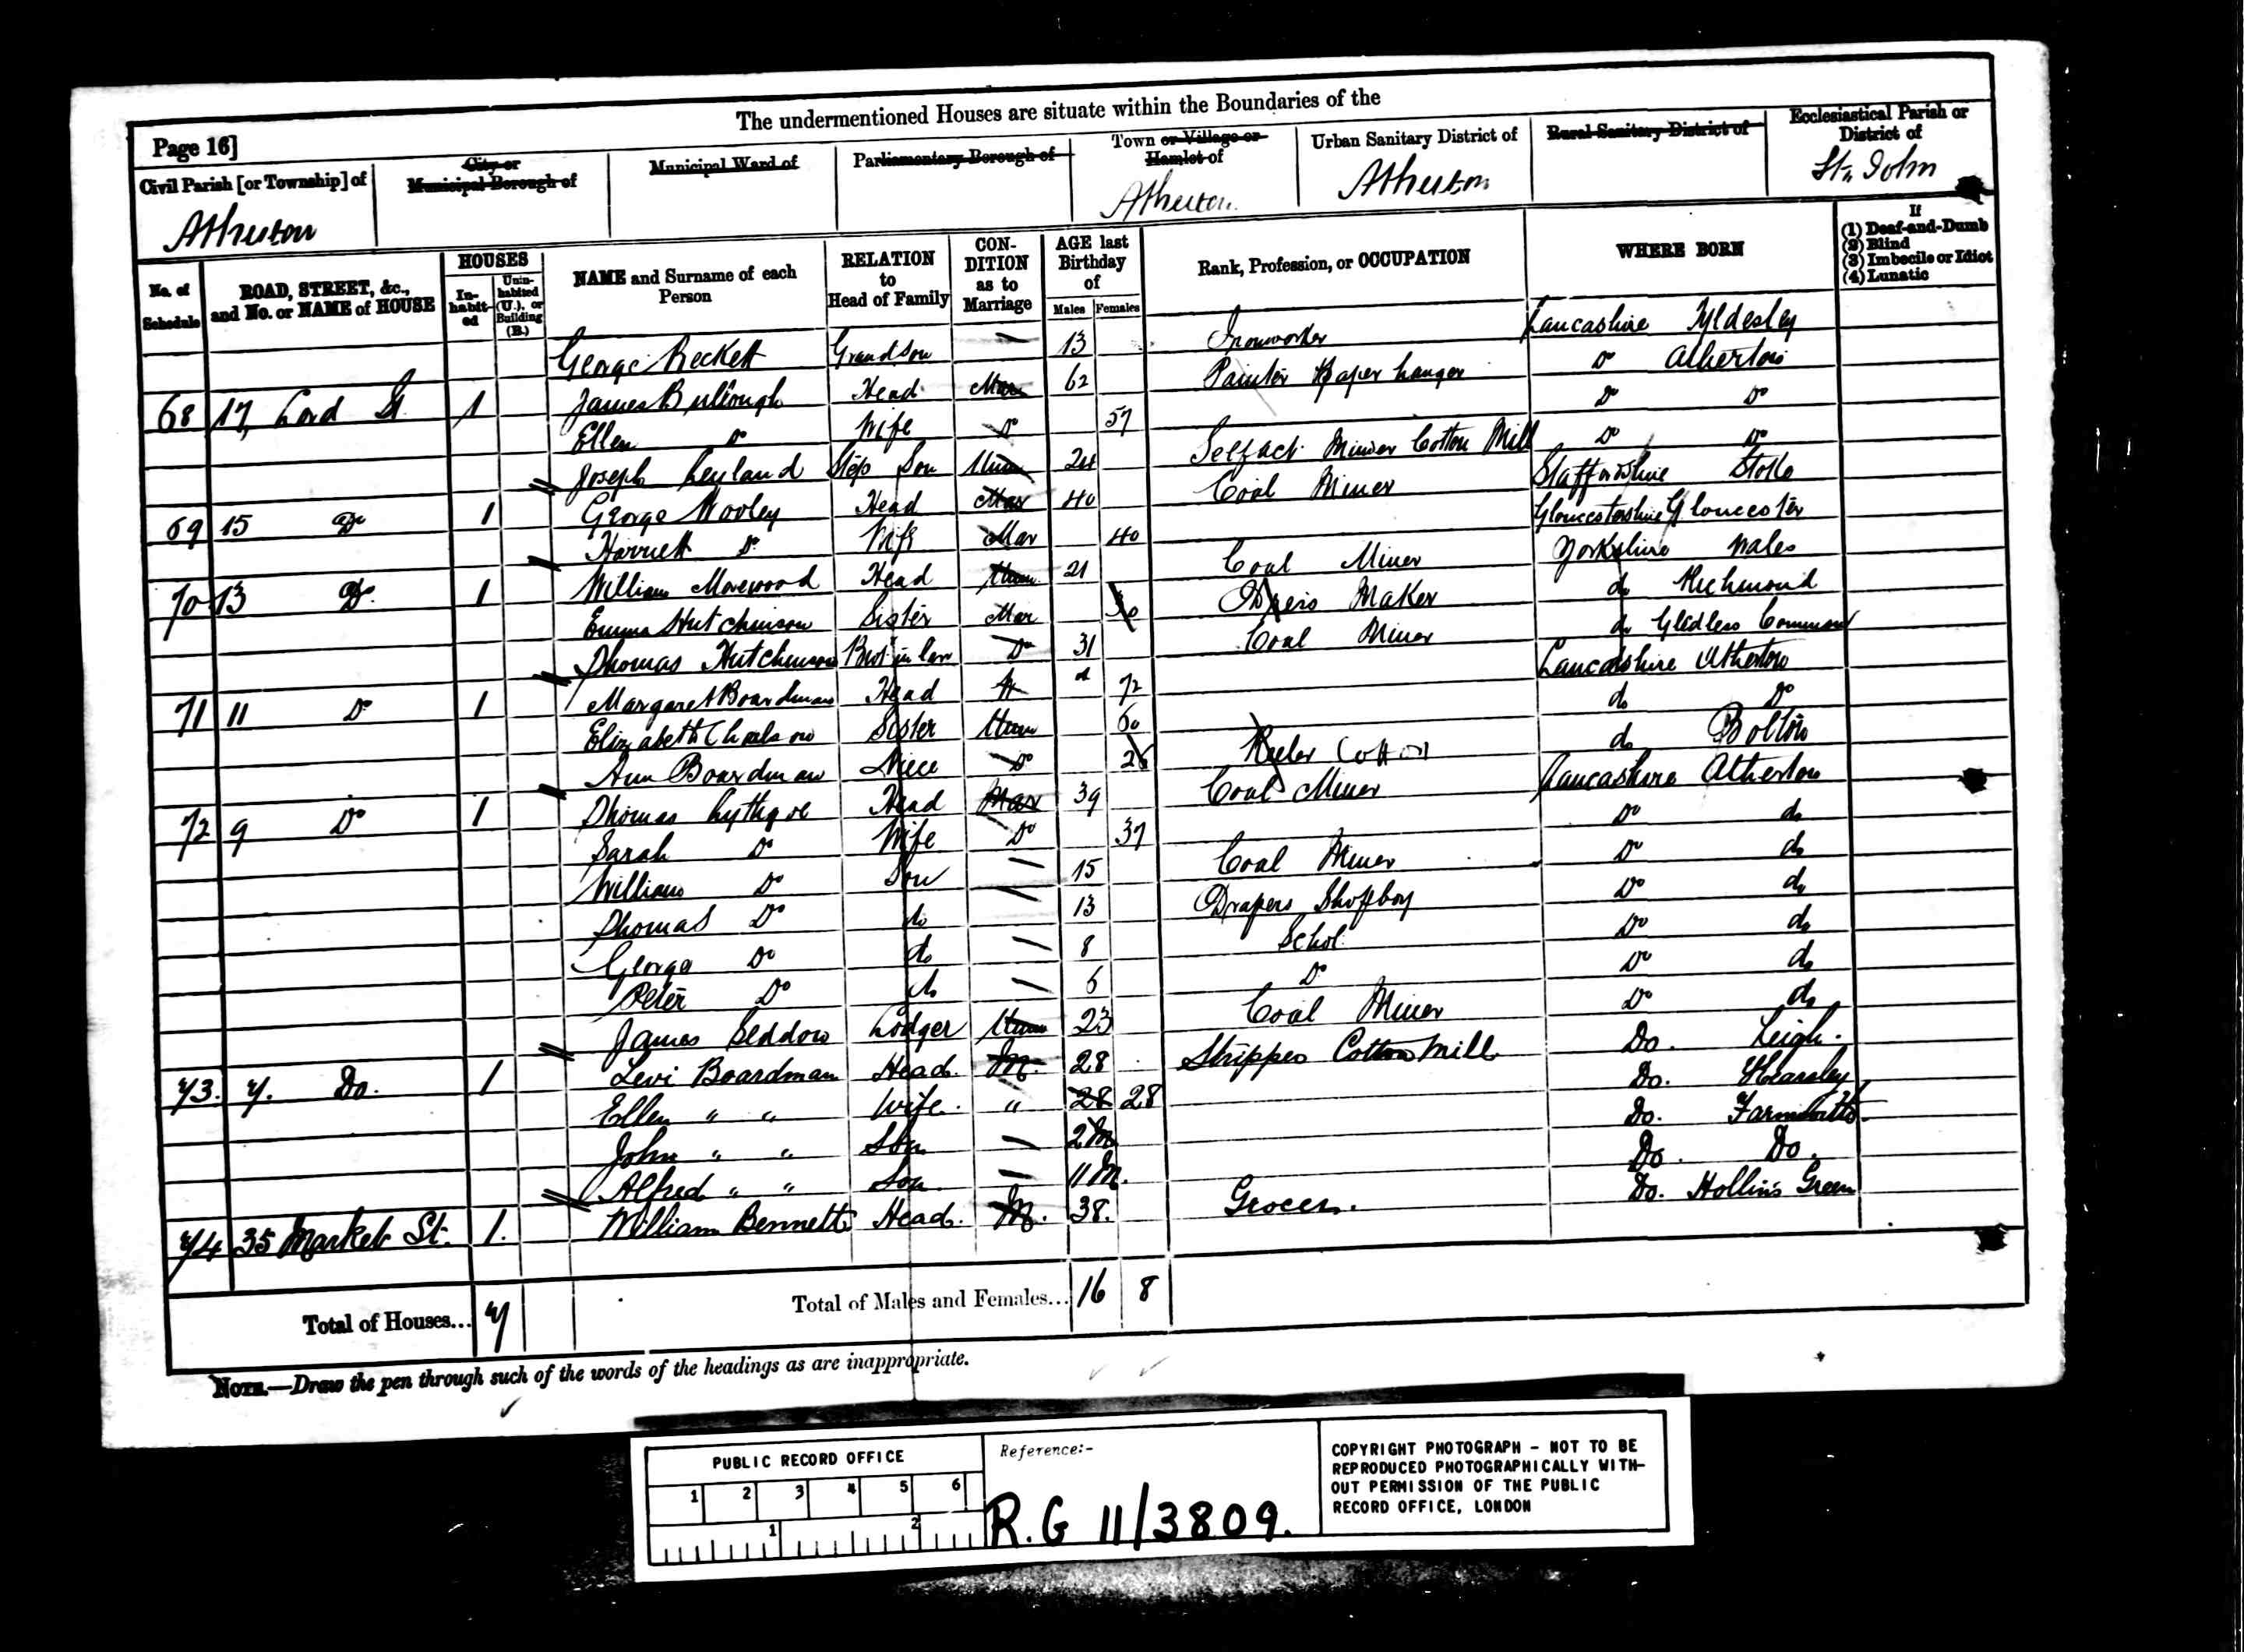 The undermentioned Houses are situate within the Boundaries of the
Page 16]
Civil Parish [or Township] of
City or Municipal Borough of
Municipal Ward of
Parliamentary Borough of
Town or Village or Hamlet of
Urban Sanitary District of
Rural Sanitary District of
Ecclesiastical Parish or District of
Atherton Atherton Atherton St. John
No. of Schedule
ROAD, STREET, &c., and No. or NAME of HOUSE
HOUSES
In-habit-ed
Unin-habited (U.), or Building (B.)
NAME and Surname of each Person
RELATION to Head of Family
CON-DITION as to Marriage
AGE last Birthday of
Males Females
Rank, Profession, or OCCUPATION
WHERE BORN
If
(1) Deaf-and-Dumb
(2) Blind
(3) Imbecile or Idiot
(4) Lunatic
George Beckett Grandson — 13 Ironworker Lancashire Tyldesley
68 17, Lord St 1 James Bullough Head Mar 62 Painter Paper hanger Do Atherton
Ellen Do Wife Do 57 Do Do
Joseph Leyland Step Son Unm 24 Selfact. Minder Cotton Mill Do Do
69 15 Do 1 George Wooley Head Mar 40 Coal Miner Staffordshire Stoke
Harriett Do Wife Mar 40 Gloucestershire Gloucester
70 13 Do 1 William Morewood Head Unm 21 Coal Miner Yorkshire Wales
Emma Hutchinson Sister Mar 30 Maker do Richmond
Thomas Hutchinson Bro in law Do 31 Coal Miner do Gledless Common
71 11 Do 1 Margaret Boardman Head W 72 Lancashire Atherton
Elizabeth Sister Unm 60 do Do
Ann Boardman Niece Do 26 Reeler Cotton do Bolton
72 9 Do 1 Thomas Lythgoe Head Mar 39 Coal Miner Lancashire Atherton
Sarah Do Wife Do 37 Do do
William Do Son — 15 Coal Miner Do do
Thomas Do do — 13 Drapers Shopboy Do do
George Do do — 8 Schol. Do do
Peter Do do — 6 Do Do do
James Seddon Lodger Unm 23 Coal Miner Do do
73. 7. Do. 1 Levi Boardman Head. M. 28 Stripper Cotton Mill Do. Leigh.
Ellen " " Wife. " 28 28 Do. Kearsley
John " " Son — 2 M Do. Farnworth.
Alfred " " Son — 11 M. Do. Do.
74 35 Market St. 1. William Bennett Head. M. 38. Grocer. Do. Hollins Green
Total of Houses... 7
Total of Males and Females... 16 8
NOTE.—Draw the pen through such of the words of the headings as are inappropriate.
PUBLIC RECORD OFFICE
1 2 3 4 5 6
1 2
Reference:-
R.G 11/3809.
COPYRIGHT PHOTOGRAPH - NOT TO BE
REPRODUCED PHOTOGRAPHICALLY WITH-
OUT PERMISSION OF THE PUBLIC
RECORD OFFICE, LONDON